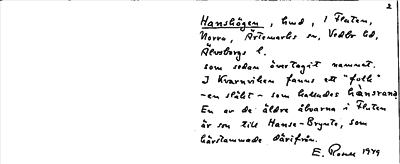 2
Hanshögen, hmd, i Fluten,
Norra, Ärtemarks sn, Vedbo hd,
Älvsborgs l.
som sedan övertagit namnet.
I Kvarnviken fanns ett "folk"
-en släkt- som kallades hånsrana
En av de äldre ägarna i Fluten
är son till Hanse-Brynte, som
härstammade därifrån.
E. Rosén 1949